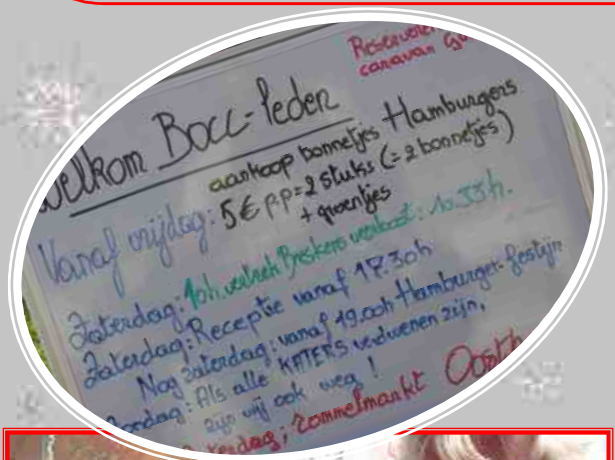 Reserveren
caravan
Welkom Bocc-leden
aankoop bonnetjes Hamburgers
Vanaf vrijdag: 5€ p.p = 2 stuks (= 2 bonnetjes)
+ groentjes
Zaterdag: 10h. vertrek Breskens
Zaterdag: Receptie vanaf 17.30h
Nog zaterdag: vanaf 19.00h Hamburger-festijn
Zondag: Als alle KATERS verdwenen zijn,
zijn wij ook weg!
rommelmarkt